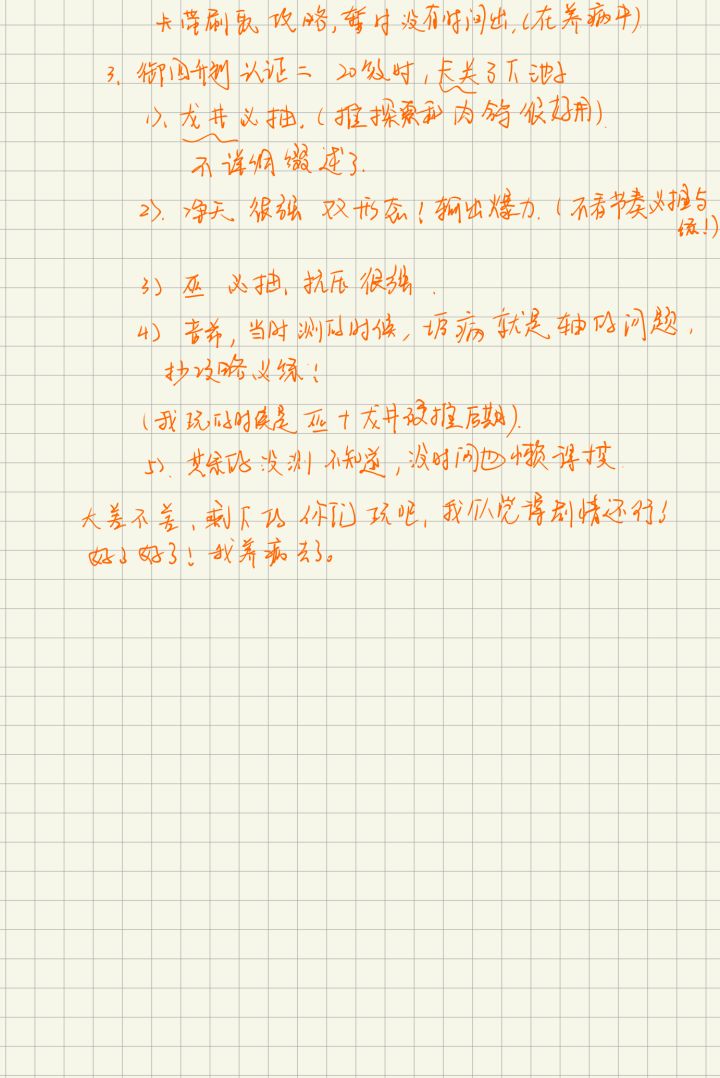 卡带刷取攻略,暂时没有时间出,(在养病中)
3、御囚判认证二 20级时,卡关了下池子
1>、龙井必抽,(推探索和内鸽很好用)
不详细缀述了.
2>、净天 很强 双形态!输出爆力.(不看节奏必推与
练!)
3)巫 必抽,抗压很强.
4)当时测的时候,毛病就是轴的问题,
抄攻略必练!
(我玩的时候是巫+龙井硬推后期).
5>、其余的没测不知道,没时间也懒得摸
大差不差,剩下的你们玩吧,我认觉得剧情还行了
好了好了!我养病去了。